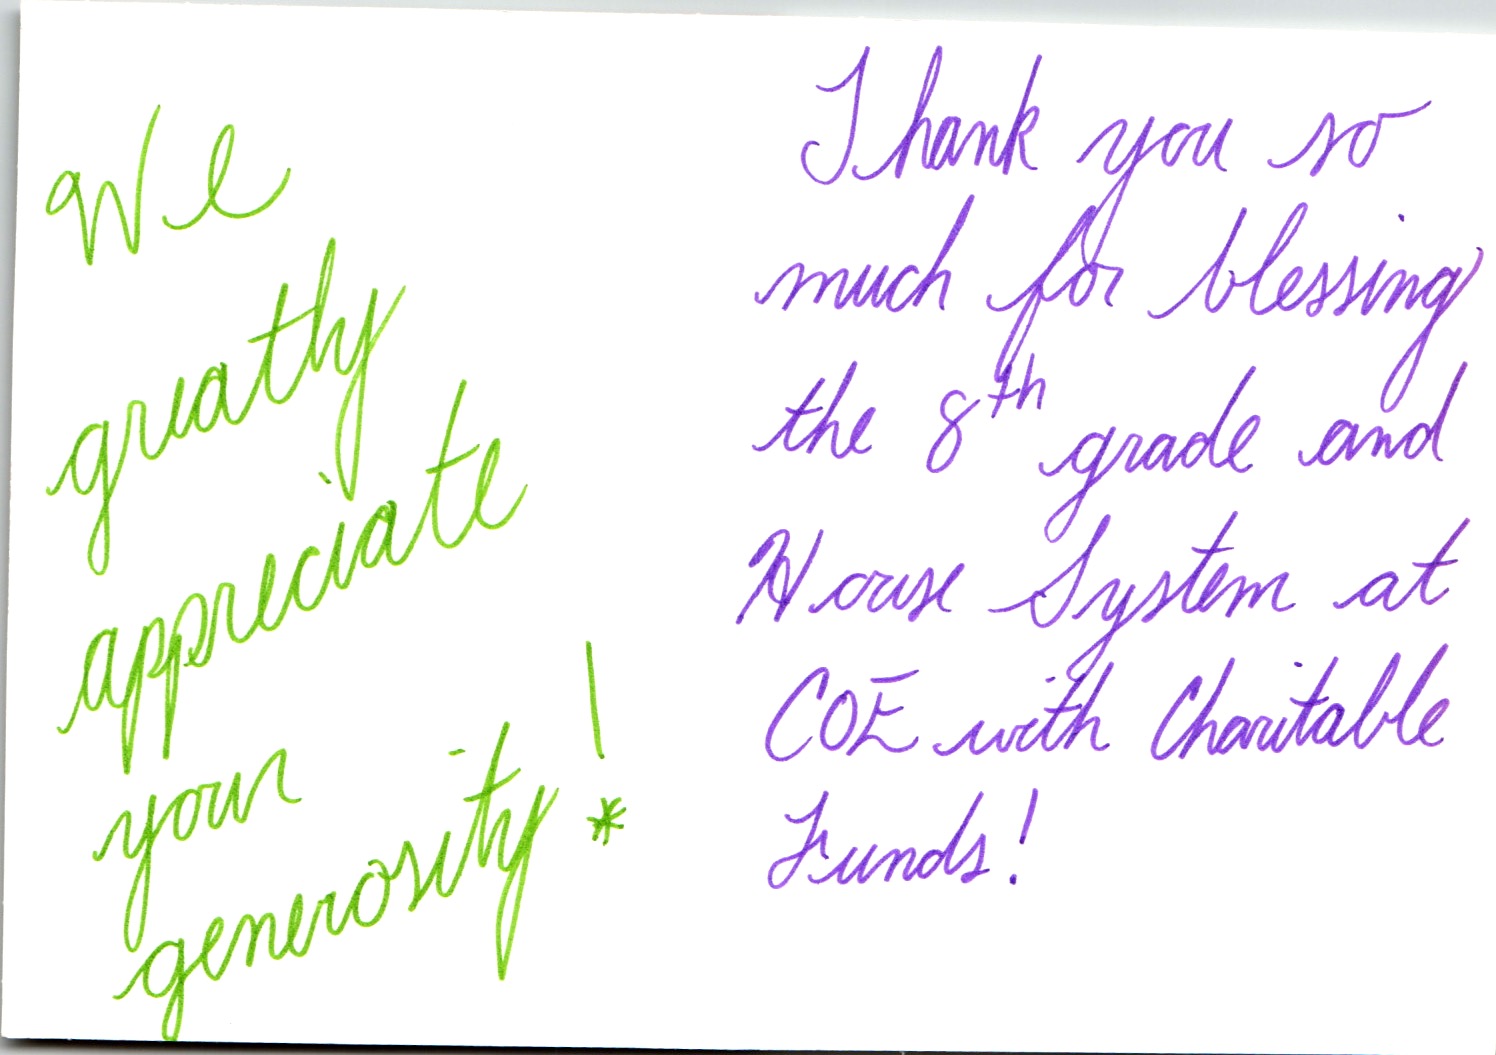 We
greatly
appreciate
your
generosity!
Thank you so
much for blessing
the 8th grade and
House System at
COE with Charitable
Funds!